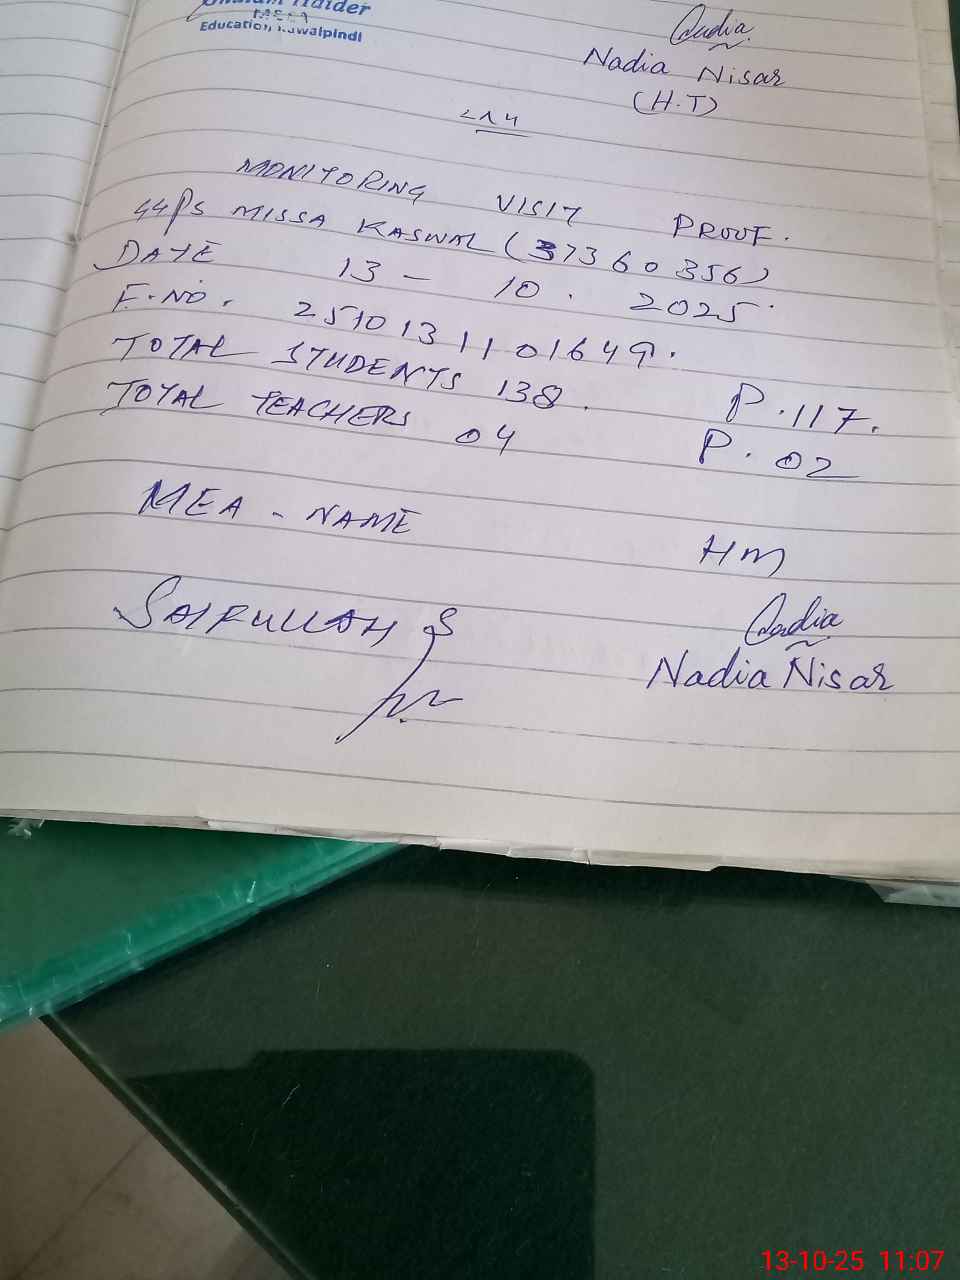 Haider
Education, Rawalpindi
Nadia
Nadia Nisar
(H.T)
MONITORING VISIT PROOF.
GGPS MISSA KASWAL (37360356)
DATE 13 - 10 . 2025.
F.NO. 2510131101649.
TOTAL STUDENTS 138. P.117.
TOTAL TEACHERS 04 P. 02
MEA - NAME HM
SAIFULLAH S Nadia
Nadia Nisar
13-10-25 11:07